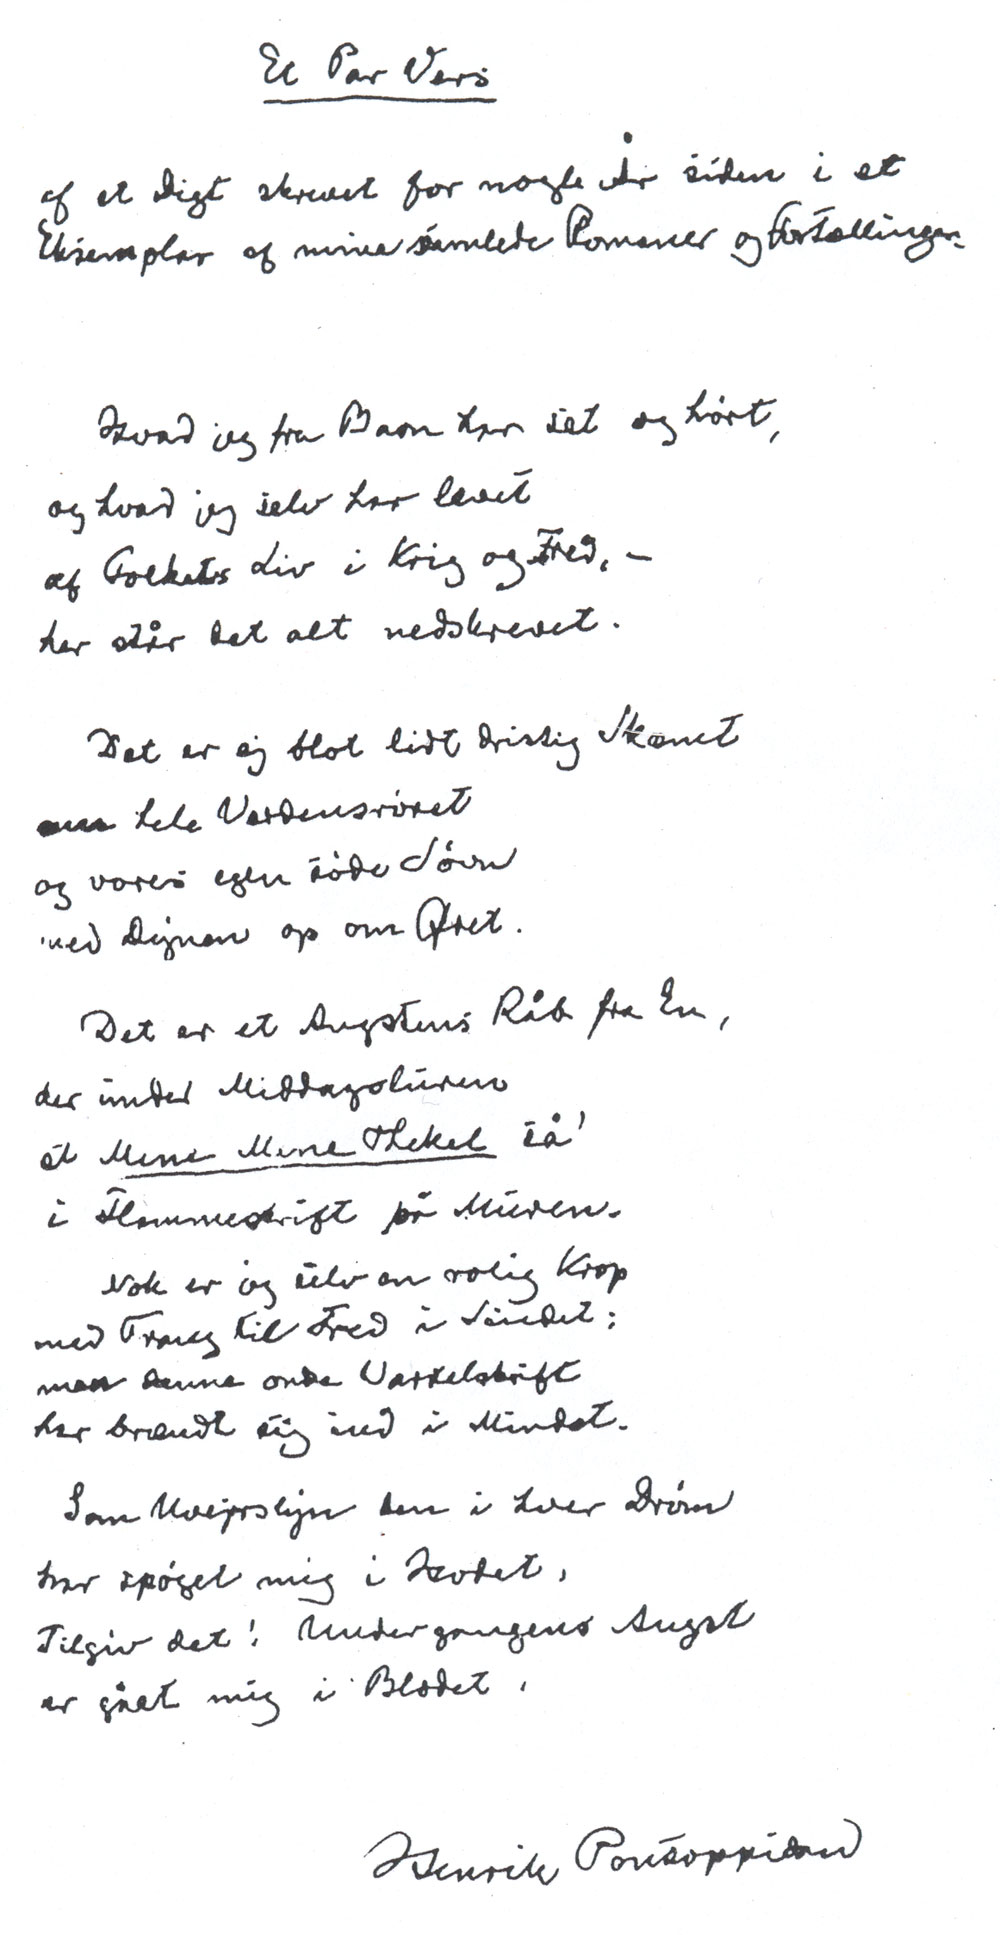 Et Par Vers
af et Digt skrevet for nogle År siden i et
Eksemplar af mine samlede Romaner og Fortællinger.
Hvad jeg fra Barn har set og hørt,
og hvad jeg selv har levet
af Folkets Liv i Krig og Fred, —
her står det alt nedskrevet.
Det er ej blot lidt dristig Skæmt
om hele Verdensrøret
og vores egen søde Søvn
med Dynen op om Øret.
Det er et Angstens Råb fra En,
der under Middagsluren
et Mene Mene Thekel så'
i Flammeskrift på Muren.
Nok er jeg selv en rolig Krop
med Trang til Fred i Sindet;
men denne onde Varselskrift
har brændt sig ind i Mindet.
Som Uvejrslyn den i hver Drøm
har spøget mig i Hodet,
Tilgiv det! Undergangens Angst
er gået mig i Blodet.
Henrik Pontoppidan